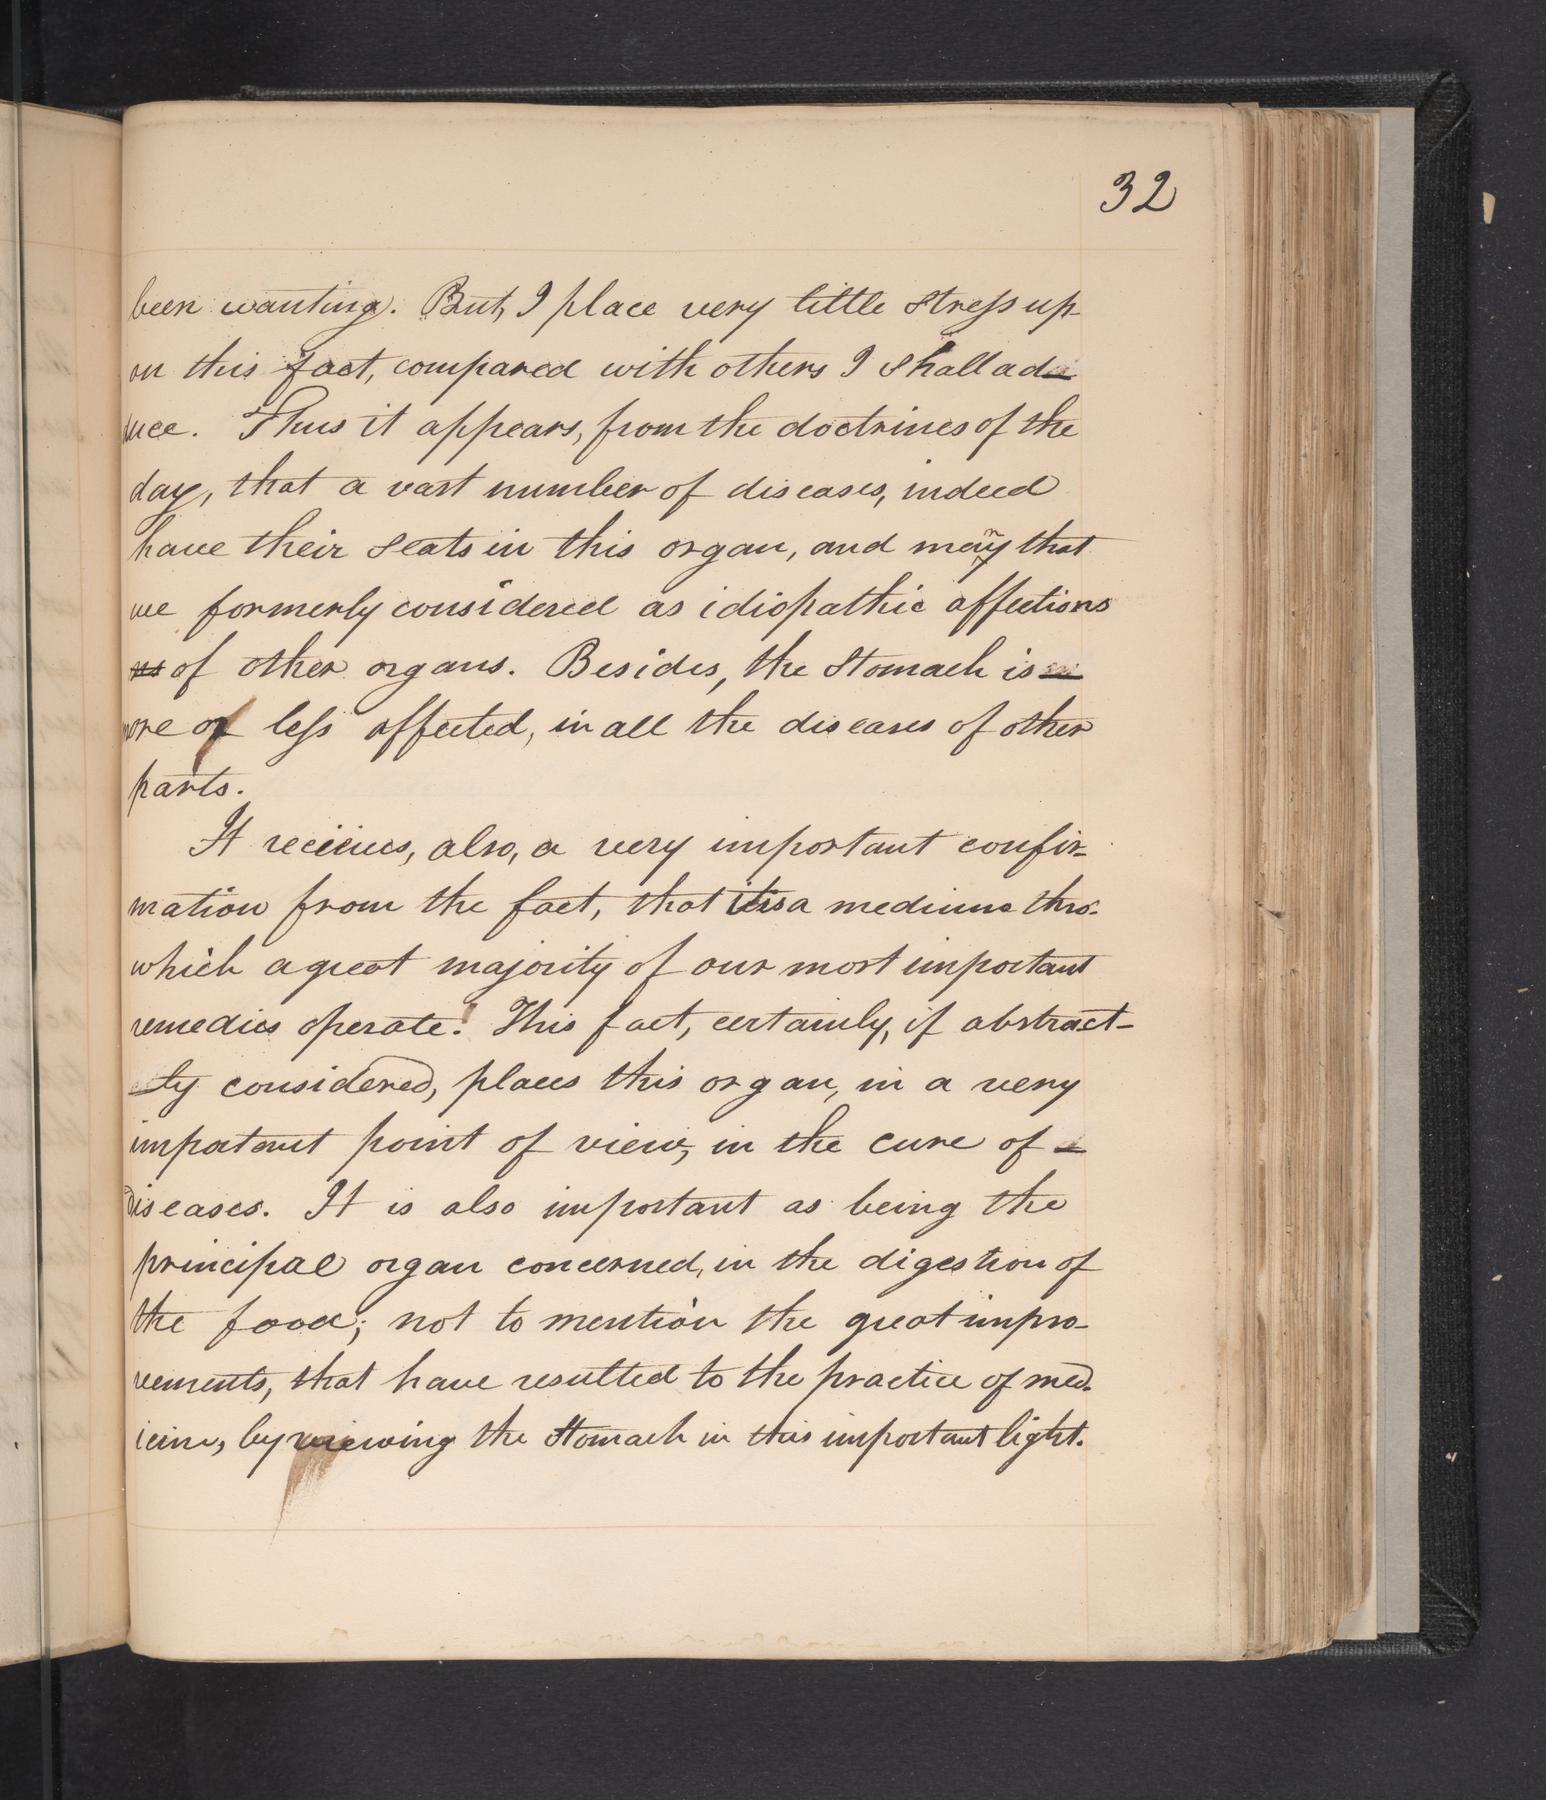 32
been wanting. But, I place very little stress up
on this fact, compared with others I shall ad-
duce. Thus it appears, from the doctrines of the
day, that a vast number of diseases, indeed
have their seats in this organ, and many that
we formerly considered as idiopathic affections
of other organs. Besides, the stomach is
more or less affected, in all the diseases of other
parts.
It receives, also, a very important confir-
mation from the fact, that it is a medium thro.
which a great majority of our most important
remedies operate. This fact, certainly, if abstract-
ly considered, places this organ, in a very
important point of view, in the cure of
diseases. It is also important as being the
principal organ concerned, in the digestion of
the food; not to mention the great impro-
vements, that have resulted to the practice of med-
icine, by viewing the stomach in this important light.